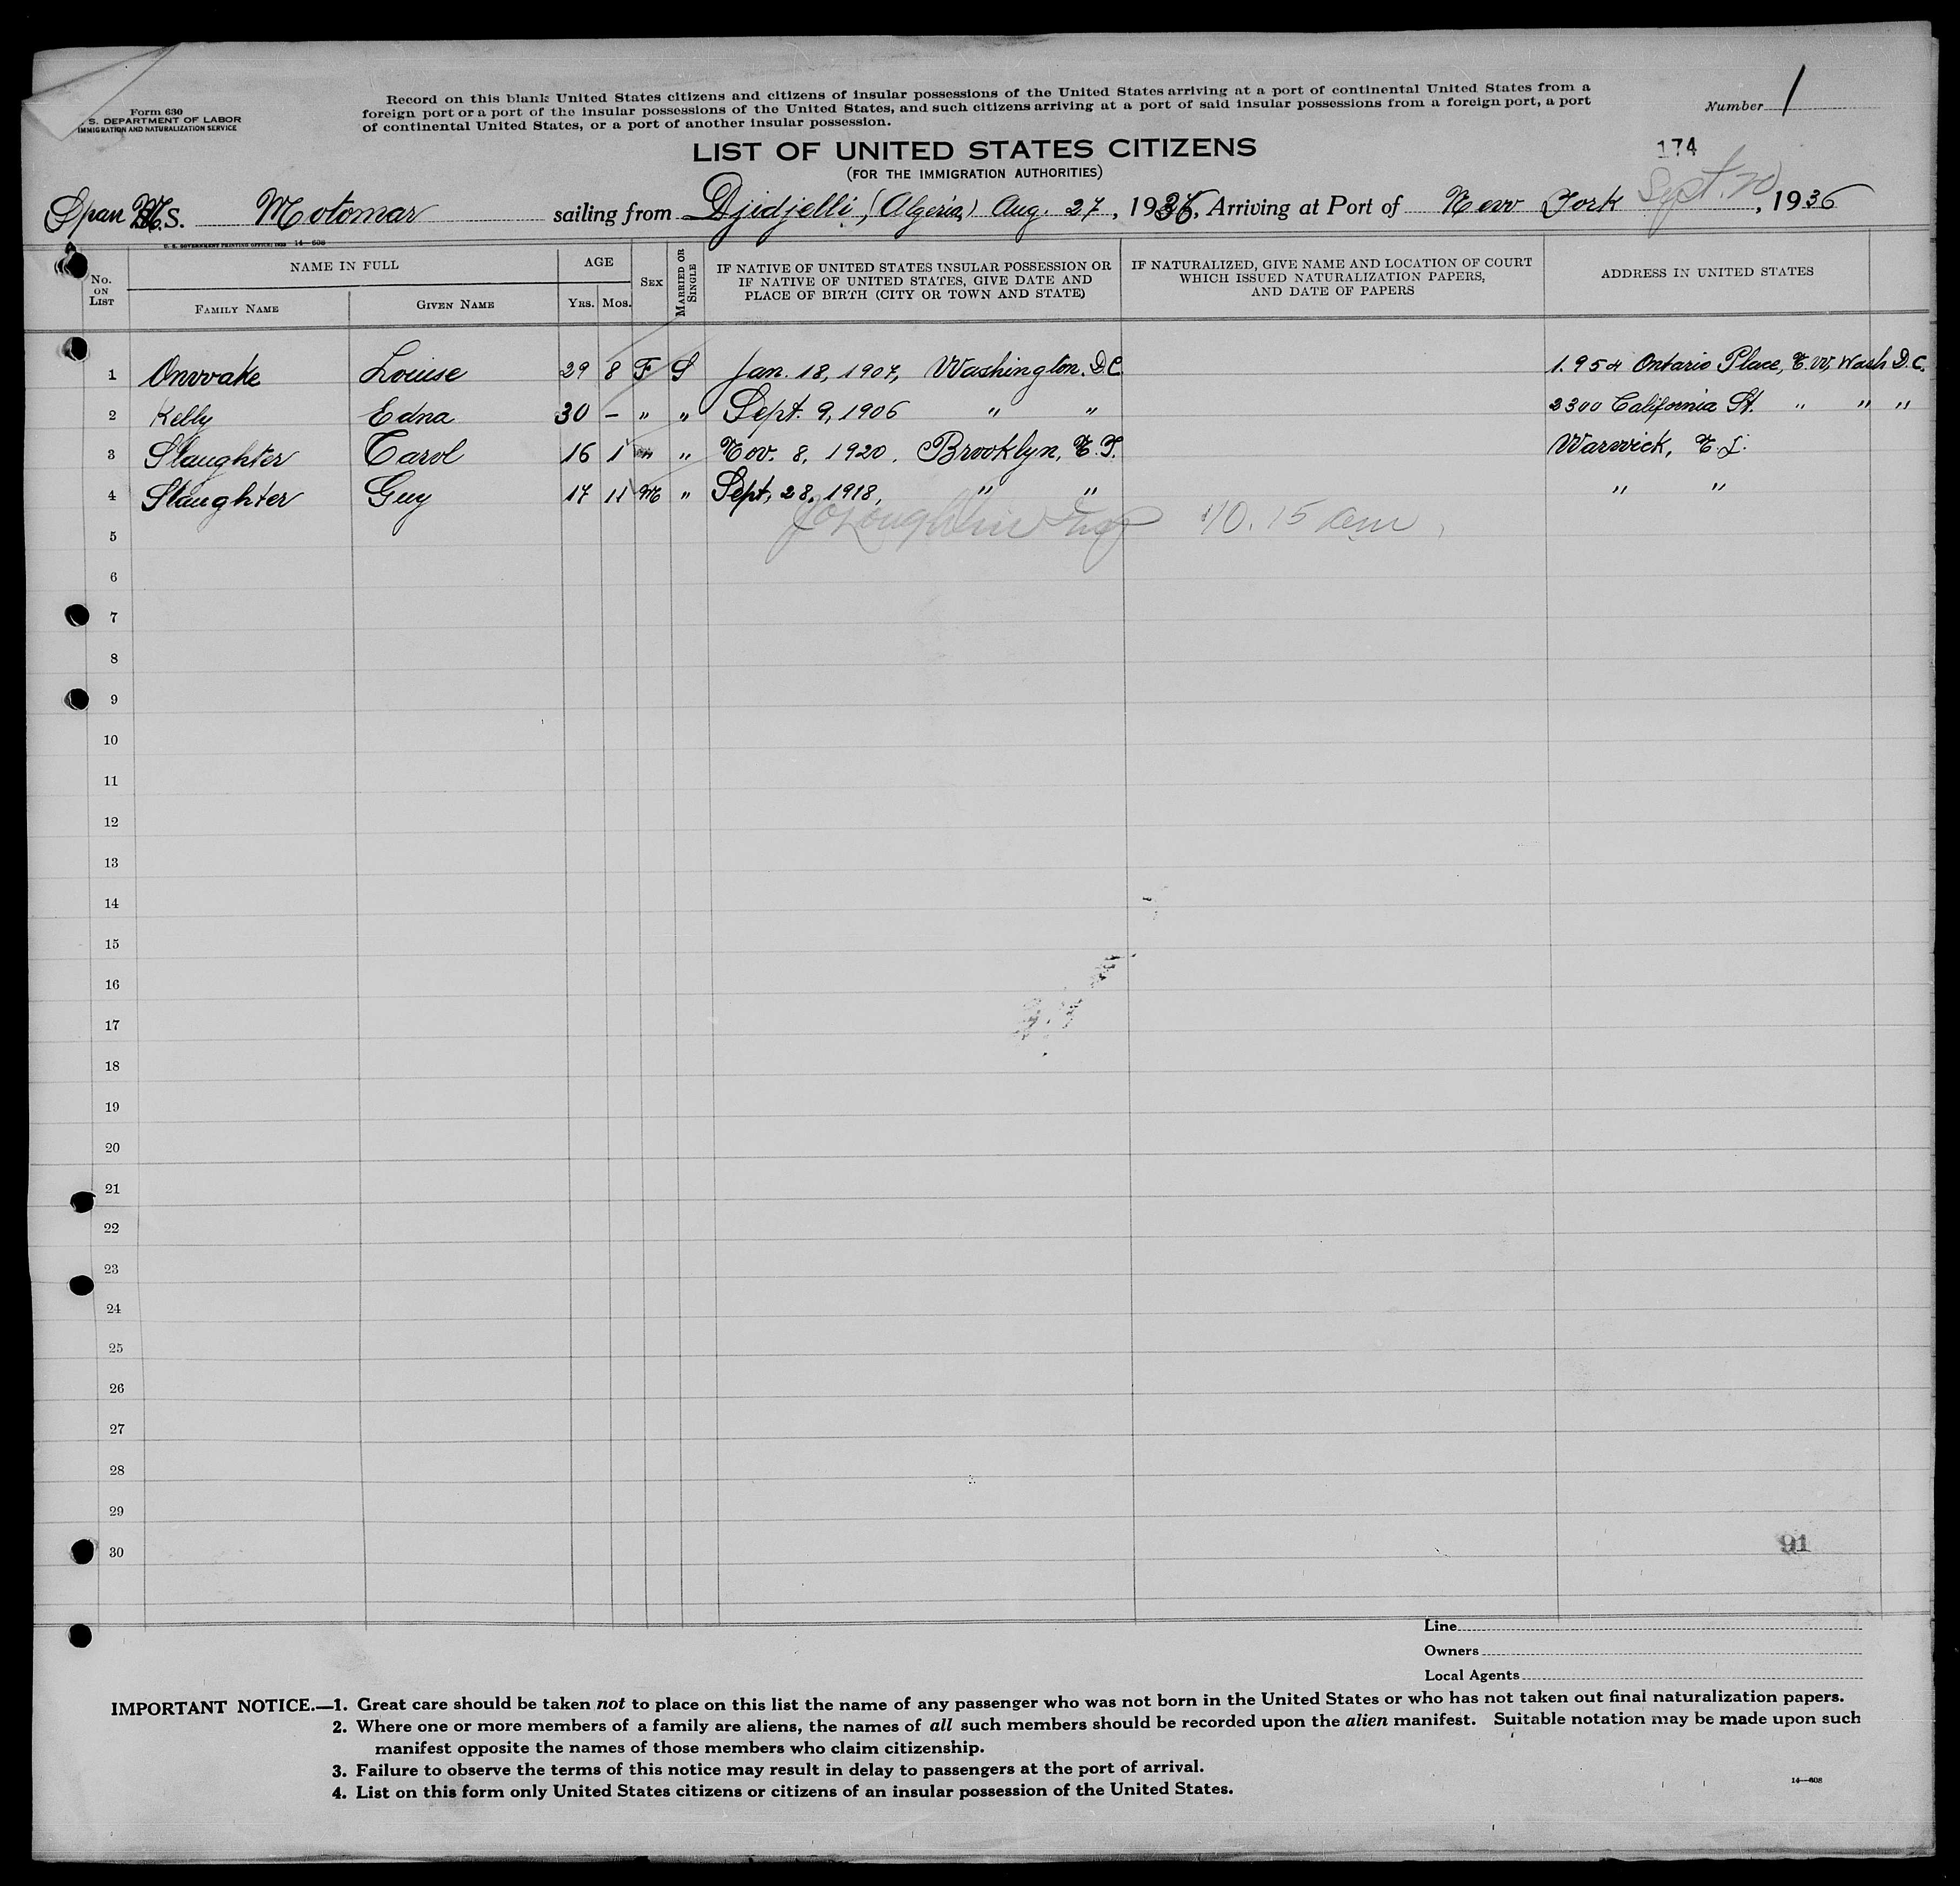 Form 630
S. DEPARTMENT OF LABOR
IMMIGRATION AND NATURALIZATION SERVICE
Record on this blank United States citizens and citizens of insular possessions of the United States arriving at a port of continental United States from a
foreign port or a port of the insular possessions of the United States, and such citizens arriving at a port of said insular possessions from a foreign port, a port
of continental United States, or a port of another insular possession.
Number 1
174
LIST OF UNITED STATES CITIZENS
(FOR THE IMMIGRATION AUTHORITIES)
Span M.S. Motomar sailing from Djidjelli, (Algeria) Aug. 27, 1936, Arriving at Port of New York Sept. 20, 1936
U. S. GOVERNMENT PRINTING OFFICE: 1935 14—608
No. ON LIST
NAME IN FULL
FAMILY NAME
GIVEN NAME
AGE
YRS.
MOS.
SEX
MARRIED OR SINGLE
IF NATIVE OF UNITED STATES INSULAR POSSESSION OR
IF NATIVE OF UNITED STATES, GIVE DATE AND
PLACE OF BIRTH (CITY OR TOWN AND STATE)
IF NATURALIZED, GIVE NAME AND LOCATION OF COURT
WHICH ISSUED NATURALIZATION PAPERS,
AND DATE OF PAPERS
ADDRESS IN UNITED STATES
1 Omwake Louise 29 8 F S Jan. 18, 1907, Washington, D.C. 1954 Ontario Place, N.W, Wash D.C.
2 Kelly Edna 30 – " " Sept. 9, 1906 " " 2300 California St. " " "
3 Slaughter Carol 16 1 " Nov. 8, 1920, Brooklyn, N.Y. Warwick, N.Y.
4 Slaughter Guy 17 11 M " Sept, 28, 1918, " " " "
5 10.15 am
6
7
8
9
10
11
12
13
14
15
16
17
18
19
20
21
22
23
24
25
26
27
28
29
30
91
Line
Owners
Local Agents
IMPORTANT NOTICE.—1. Great care should be taken not to place on this list the name of any passenger who was not born in the United States or who has not taken out final naturalization papers.
2. Where one or more members of a family are aliens, the names of all such members should be recorded upon the alien manifest. Suitable notation may be made upon such
manifest opposite the names of those members who claim citizenship.
3. Failure to observe the terms of this notice may result in delay to passengers at the port of arrival.
4. List on this form only United States citizens or citizens of an insular possession of the United States.
14—608